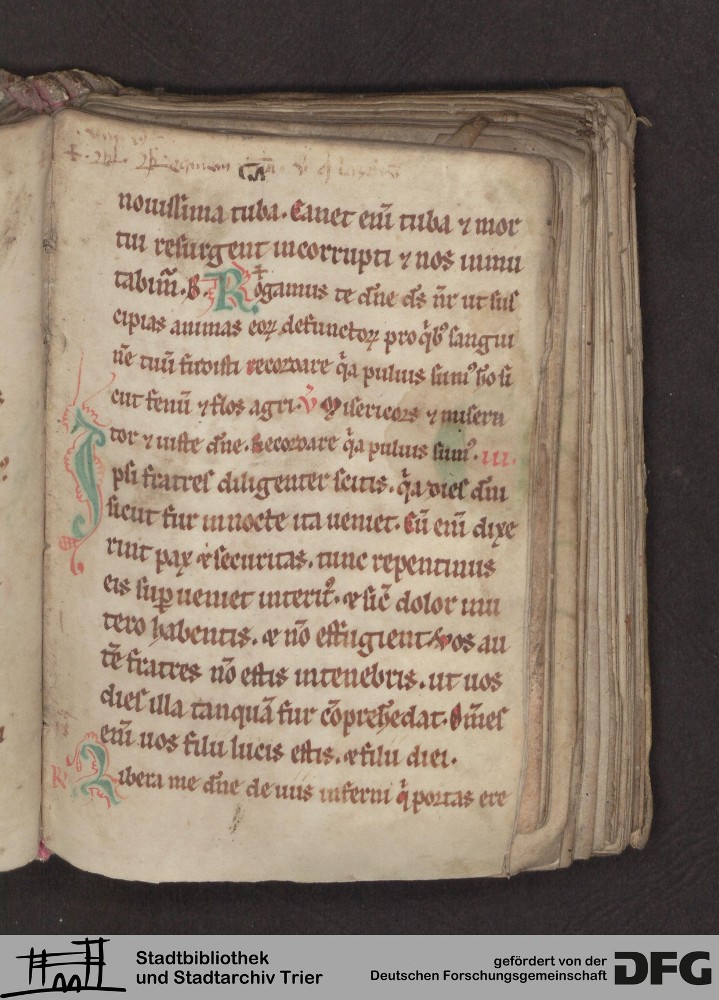 nouissima tuba. Canet eni͂ tuba ⁊ mor
tui resurgent incorrupti ⁊ nos inmu
tabim᷒. R. Rogamus te dn̄e ds̄ nr̄ ut sus
cipias animas eoꝝ defunctoꝝ pro qͥb᷒ sangui
nē tuū fudisti recordare qͥa puluis sum᷒ ⁊ ho si
cut fenū ⁊ flos agri. V Misericors ⁊ misera
tor ⁊ iuste dn̄e. Recordare qͥa puluis sum᷒. III.
Ipsi fratres diligenter scitis. qͥa dies dn̄i
sicut fur in nocte ita ueniet. Cū eni͂ dixe
rint pax ⁊ securitas. tunc repentinus
eis sup̱ueniet interit᷒. ⁊ sic̄ dolor in u
tero habentis. ⁊ nō effugient. Vos au
tē fratres nō estis in tenebris. ut uos
dies illa tanquā fur cōprehēdat. Om̄es
eni͂ uos filii lucis estis. ⁊ filii diei.
R Libera me dn̄e de uiis inferni qͥ portas ere
Stadtbibliothek
und Stadtarchiv Trier
gefördert von der
Deutschen Forschungsgemeinschaft
DFG